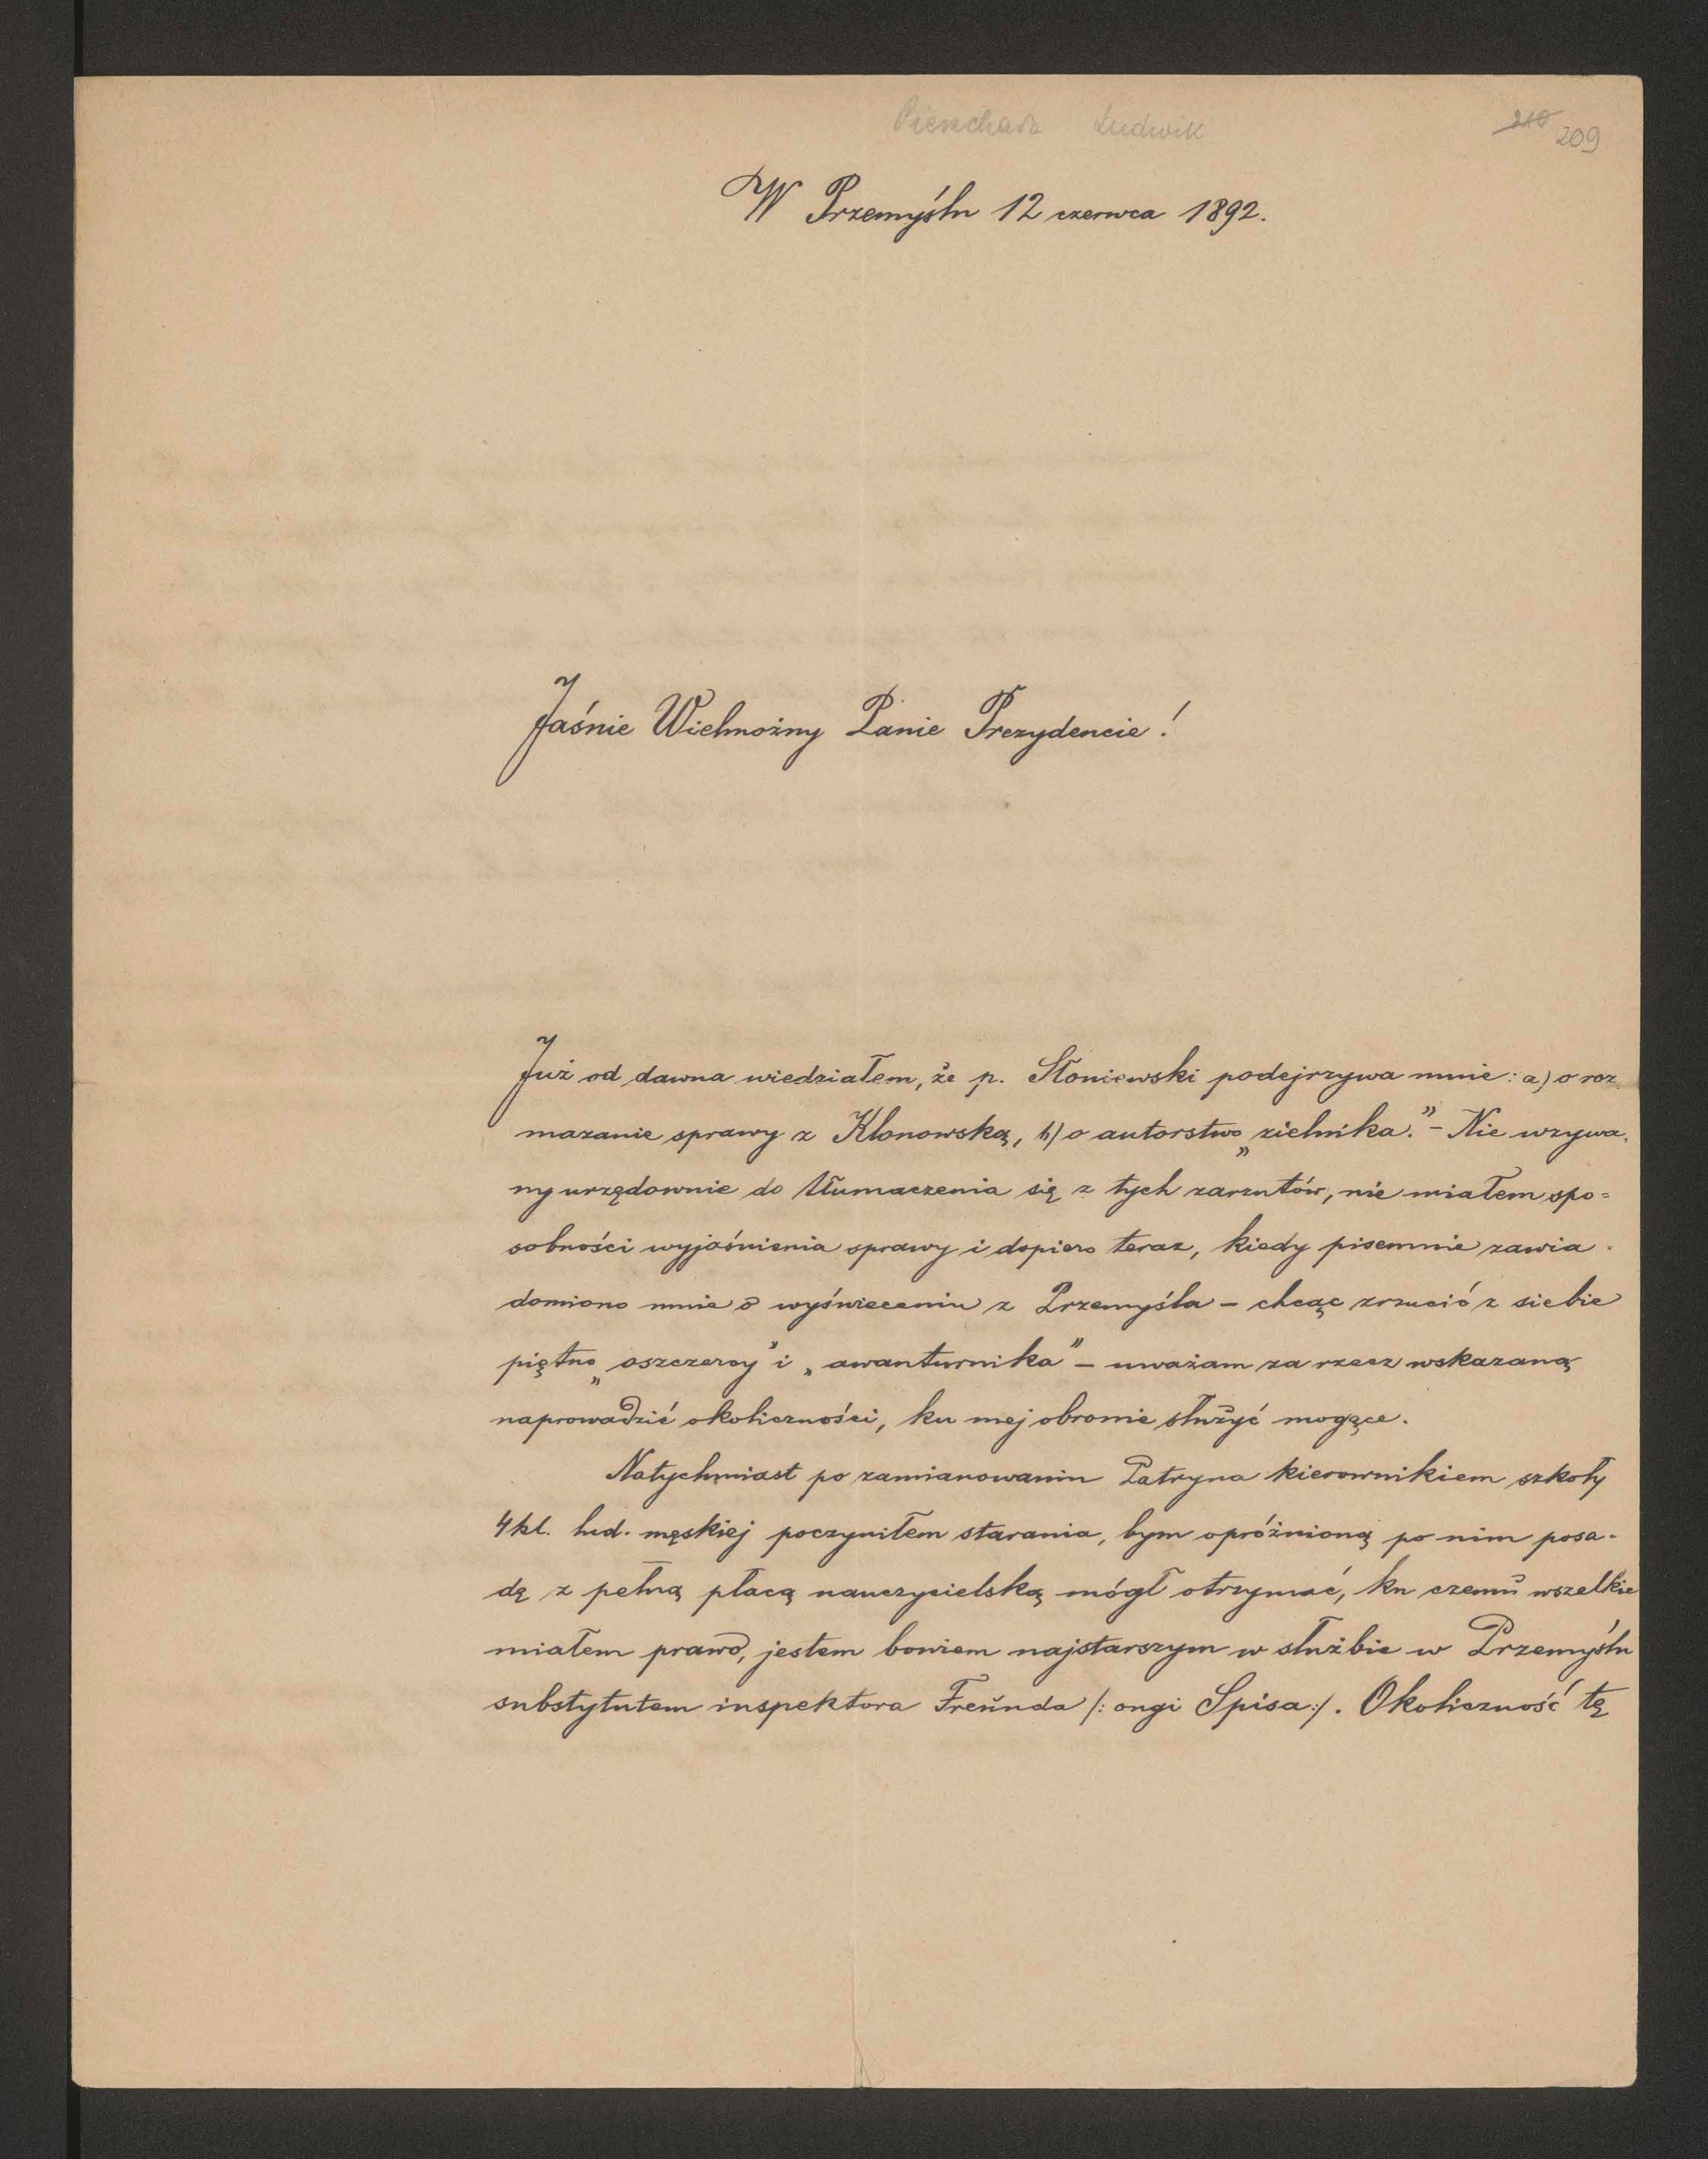 Pieschara Ludwik
210 209
W Przemyślu 12 czerwca 1892.
Jaśnie Wielmożny Panie Prezydencie!
Już od dawna wiedziałem, że p. Słoniewski podejrzywa mnie: a) o roz
mazanie sprawy z Klonowską, b) o autorstwo „zielnika.” – Nie wzywa-
ny urzędownie do tłumaczenia się z tych zarzutów, nie miałem spo=
sobności wyjaśnienia sprawy i dopiero teraz, kiedy pisemnie zawia-
domiono mnie o wyświeceniu z Przemyśla – chcąc zrzucić z siebie
piętno „oszczercy” i „awanturnika” – uważam za rzecz wskazaną
naprowadzić okoliczności, ku mej obronie służyć mogące.
Natychmiast po zamianowaniu Patryna kierownikiem szkoły
4kl. lud. męskiej poczyniłem starania, bym opróżnioną po nim posa-
dę z pełną płacą nauczycielską mógł otrzymać, ku czemu wszelkie
miałem prawo, jestem bowiem najstarszym w służbie w Przemyślu
substytutem inspektora Freunda /: ongi Spisa :/. Okoliczność tę